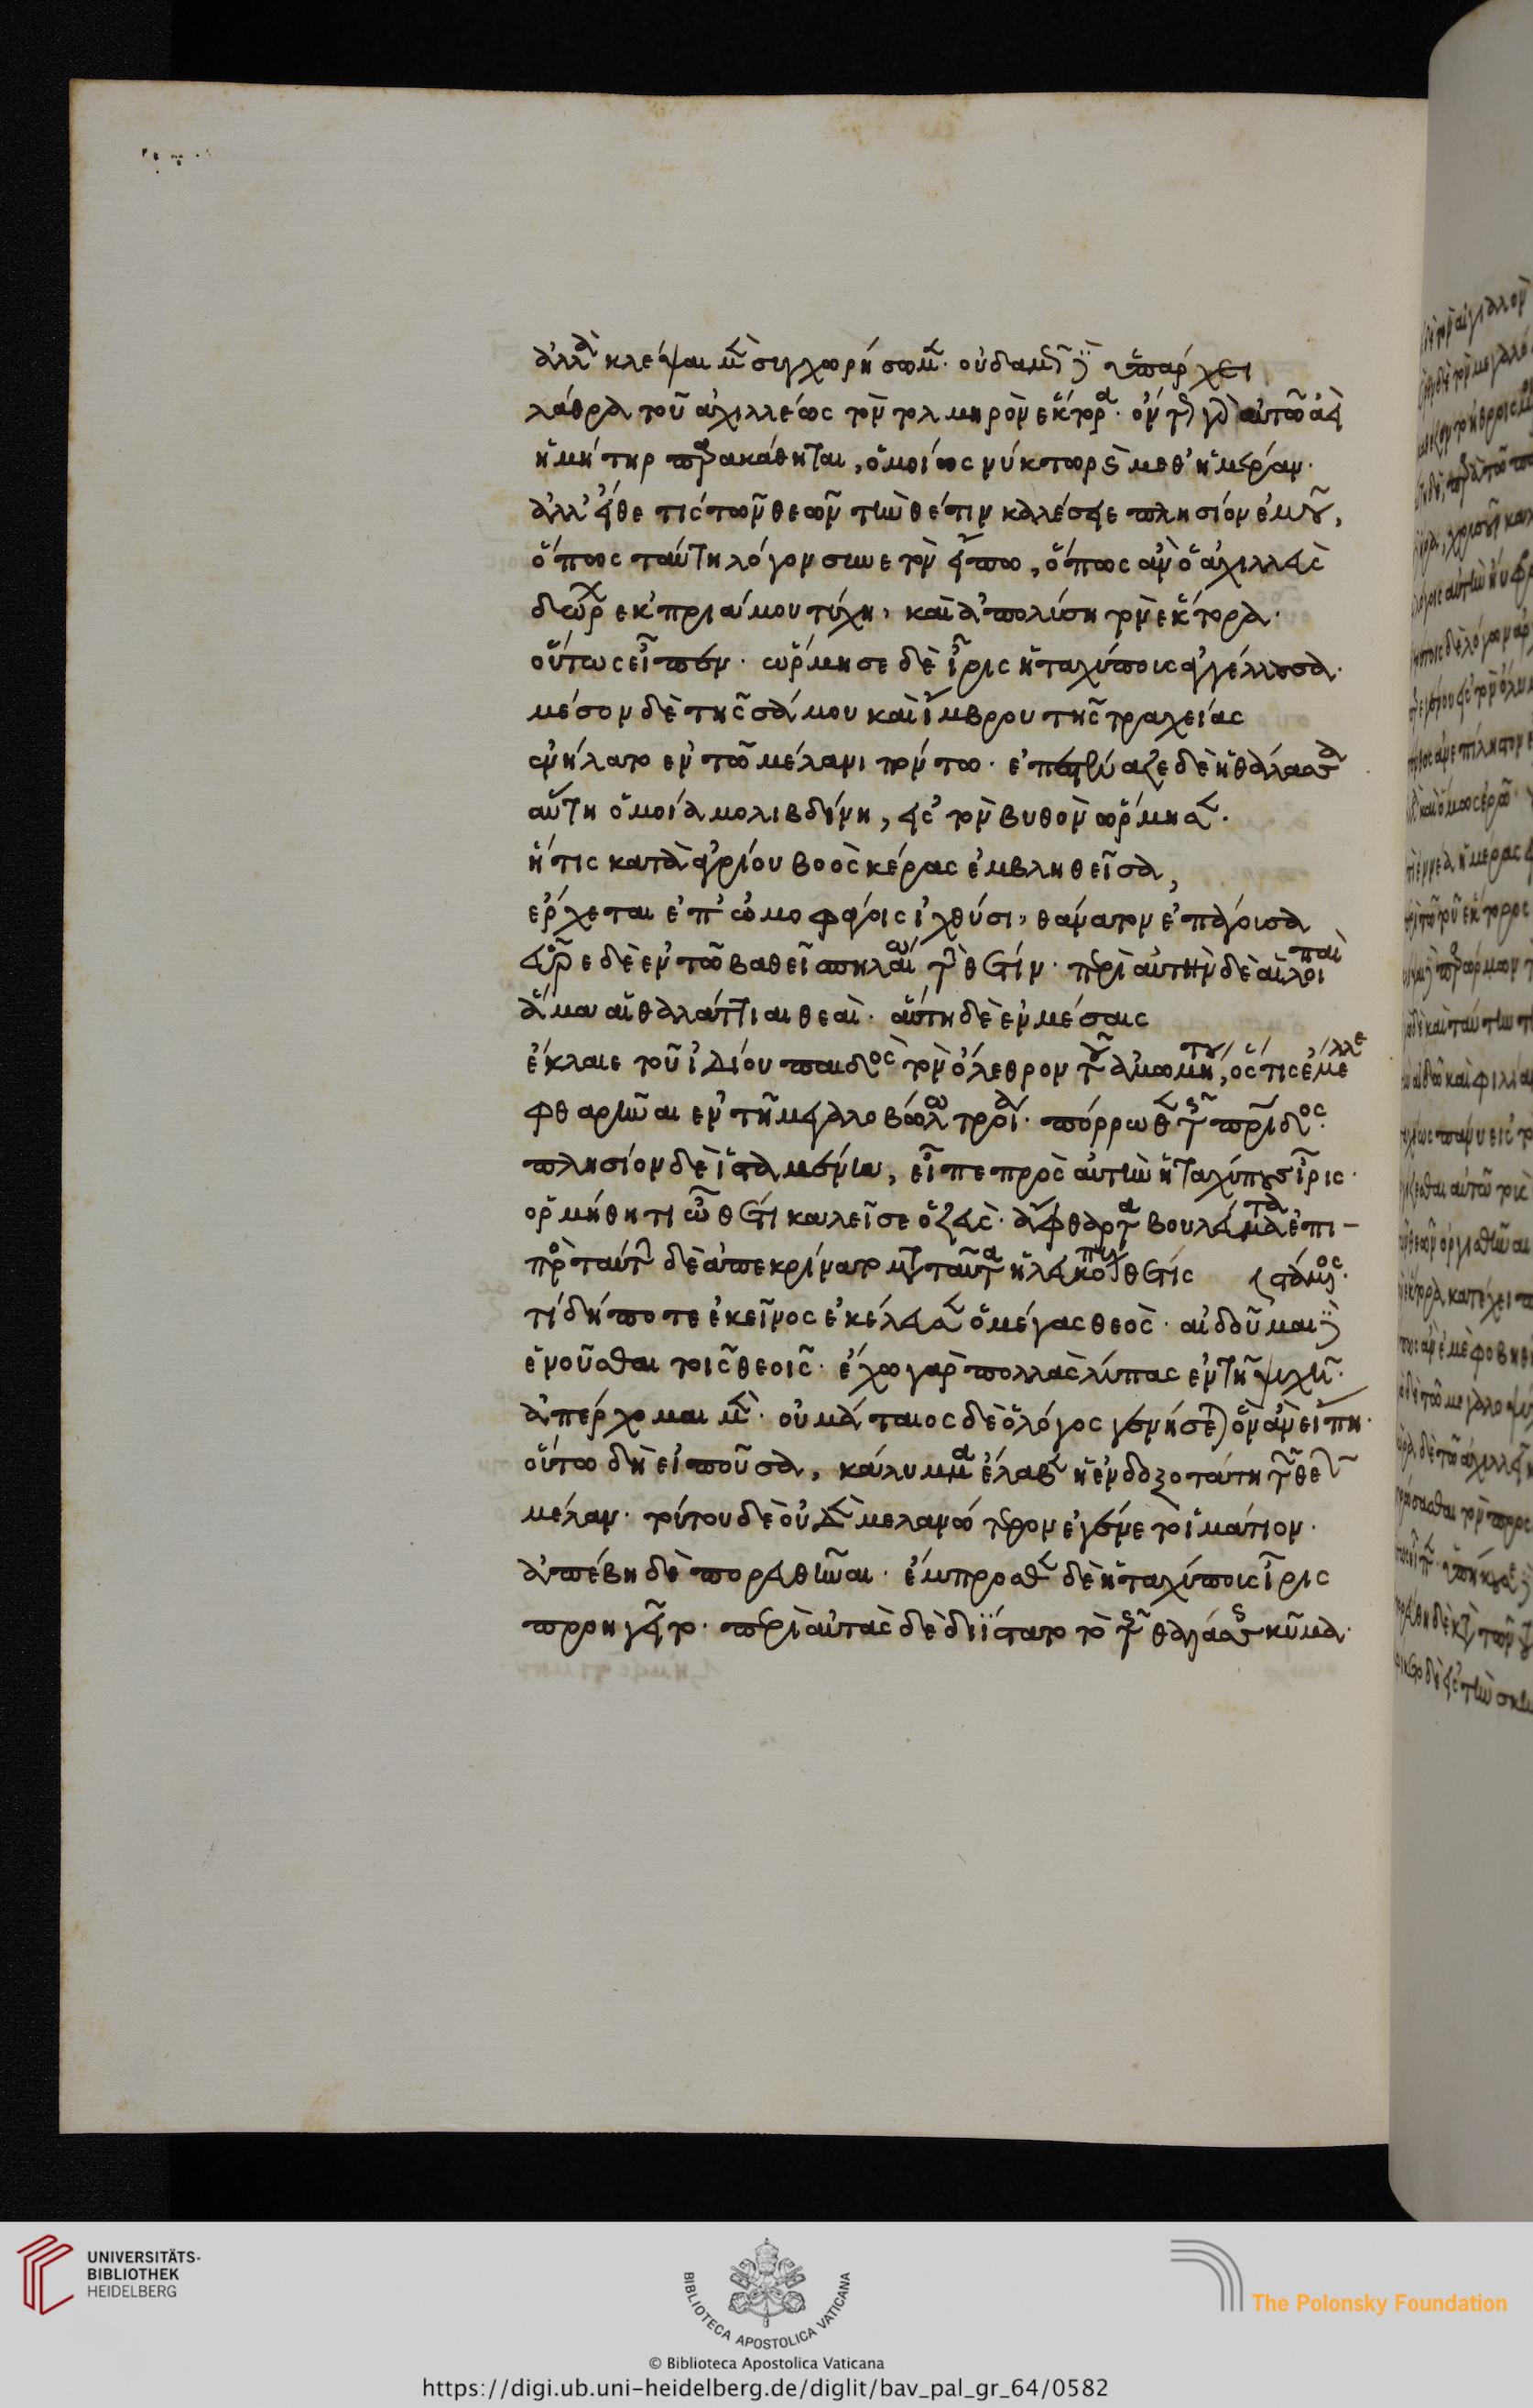 ἀλλὰ κλέψαι μὲν συγχωρήσωμεν. οὐδαμῶς ὑπάρχει
λάθρα τοῦ ἀχιλλέως τὸν τολμηρὸν ἕκτορα. ὄντως γὰρ αὐτῶ ἀεὶ
ἡ μήτηρ παρακάθηται, ὁμοίως νύκτωρ καὶ μεθ' ἡμέραν.
ἀλλ' εἴθε τίς τῶν θεῶν τὴν θέτιν καλέσειε πλησίον ἐμοῦ,
ὅπως ταύτη λόγον συνετὸν εἴπω, ὅπως ἂν ὁ ἀχιλλεὺς
δώρων ἐκ πριάμου τύχη, καὶ ἀπολύση τὸν ἕκτορα.
οὕτως εἶπεν. ὥρμησε δὲ ἶρις ἡ ταχύπους ἀγγέλλουσα.
μέσον δὲ τῆς σάμου καὶ ἴμβρου τῆς τραχείας
ἐνήλατο ἐν τῶ μέλανι πόντω. ἐπεστύαζε δὲ ἡ θάλασσα
αὕτη ὁμοία μολιβδίνη, εἰς τὸν βυθὸν ὥρμησεν.
ἥτις κατὰ ἀγρίου βοὸς κέρας ἐμβληθεῖσα,
ἔρχεται ἐπ' ὠμοφάγοις ἰχθύσι, θάνατον ἐπάγουσα
εὗρε δὲ ἐν τῶ βαθεῖ σπηλαίω τὴν θέτιν. περὶ αὐτὴν δὲ αἱ λοιπαὶ
ἅμα αἱ θαλάττιαι θεαί. αὕτη δὲ ἐν μέσαις
ἔκλαιε τοῦ ἰδίου παιδὸς τὸν ὄλεθρον τοῦ ἀμωμήτου, ὅστις ἔμελλε
φθαρῆναι ἐν τῆ μεγαλοβώλω τροία. πόρρωθεν τῆς πατρίδος.
πλησίον δὲ ἱσταμένη, εἶπε πρὸς αὐτὴν ἡ ταχύπους ἶρις.
ὁρμήθητι ὦ θέτι καλεῖ σε ὁ ζεὺς. ἄφθαρτα βουλεύματα ἐπι-
πρὸς ταύτην δὲ ἀπεκρίνατο μετὰ ταῦτα ἡ λευκόπους θέτις (στάμενος.
τί δή ποτε ἐκεῖνος ἐκέλευσεν ὁ μέγας θεὸς. αἰδοῦμαι δὲ
ἑνοῦσθαι τοῖς θεοῖς. ἔχω γὰρ πολλὰς λύπας ἐν τῆ ψυχῆ.
ἀπέρχομαι μὲν. οὐ μάταιος δὲ ὁ λόγος γενήσεται ὃν ἂν εἴπη.
οὕτω δὴ εἰποῦσα, κάλυμμα ἔλαβεν ἡ ἐνδοξοτάτη τῶν θεῶν
μέλαν. τούτου δὲ οὐδὲν μελανώτερον ἐγένετο ἱμάτιον.
ἀπέβη δὲ πορευθῆναι. ἔμπροσθεν δὲ ἡ ταχύπους ἶρις
προηγεῖτο. περὶ αὐτὰς δὲ διΐστατο τὸ τῆς θαλάσσης κῦμα.
UNIVERSITÄTS-
BIBLIOTHEK
HEIDELBERG
BIBLIOTECA APOSTOLICA VATICANA
The Polonsky Foundation
© Biblioteca Apostolica Vaticana
https://digi.ub.uni-heidelberg.de/diglit/bav_pal_gr_64/0582